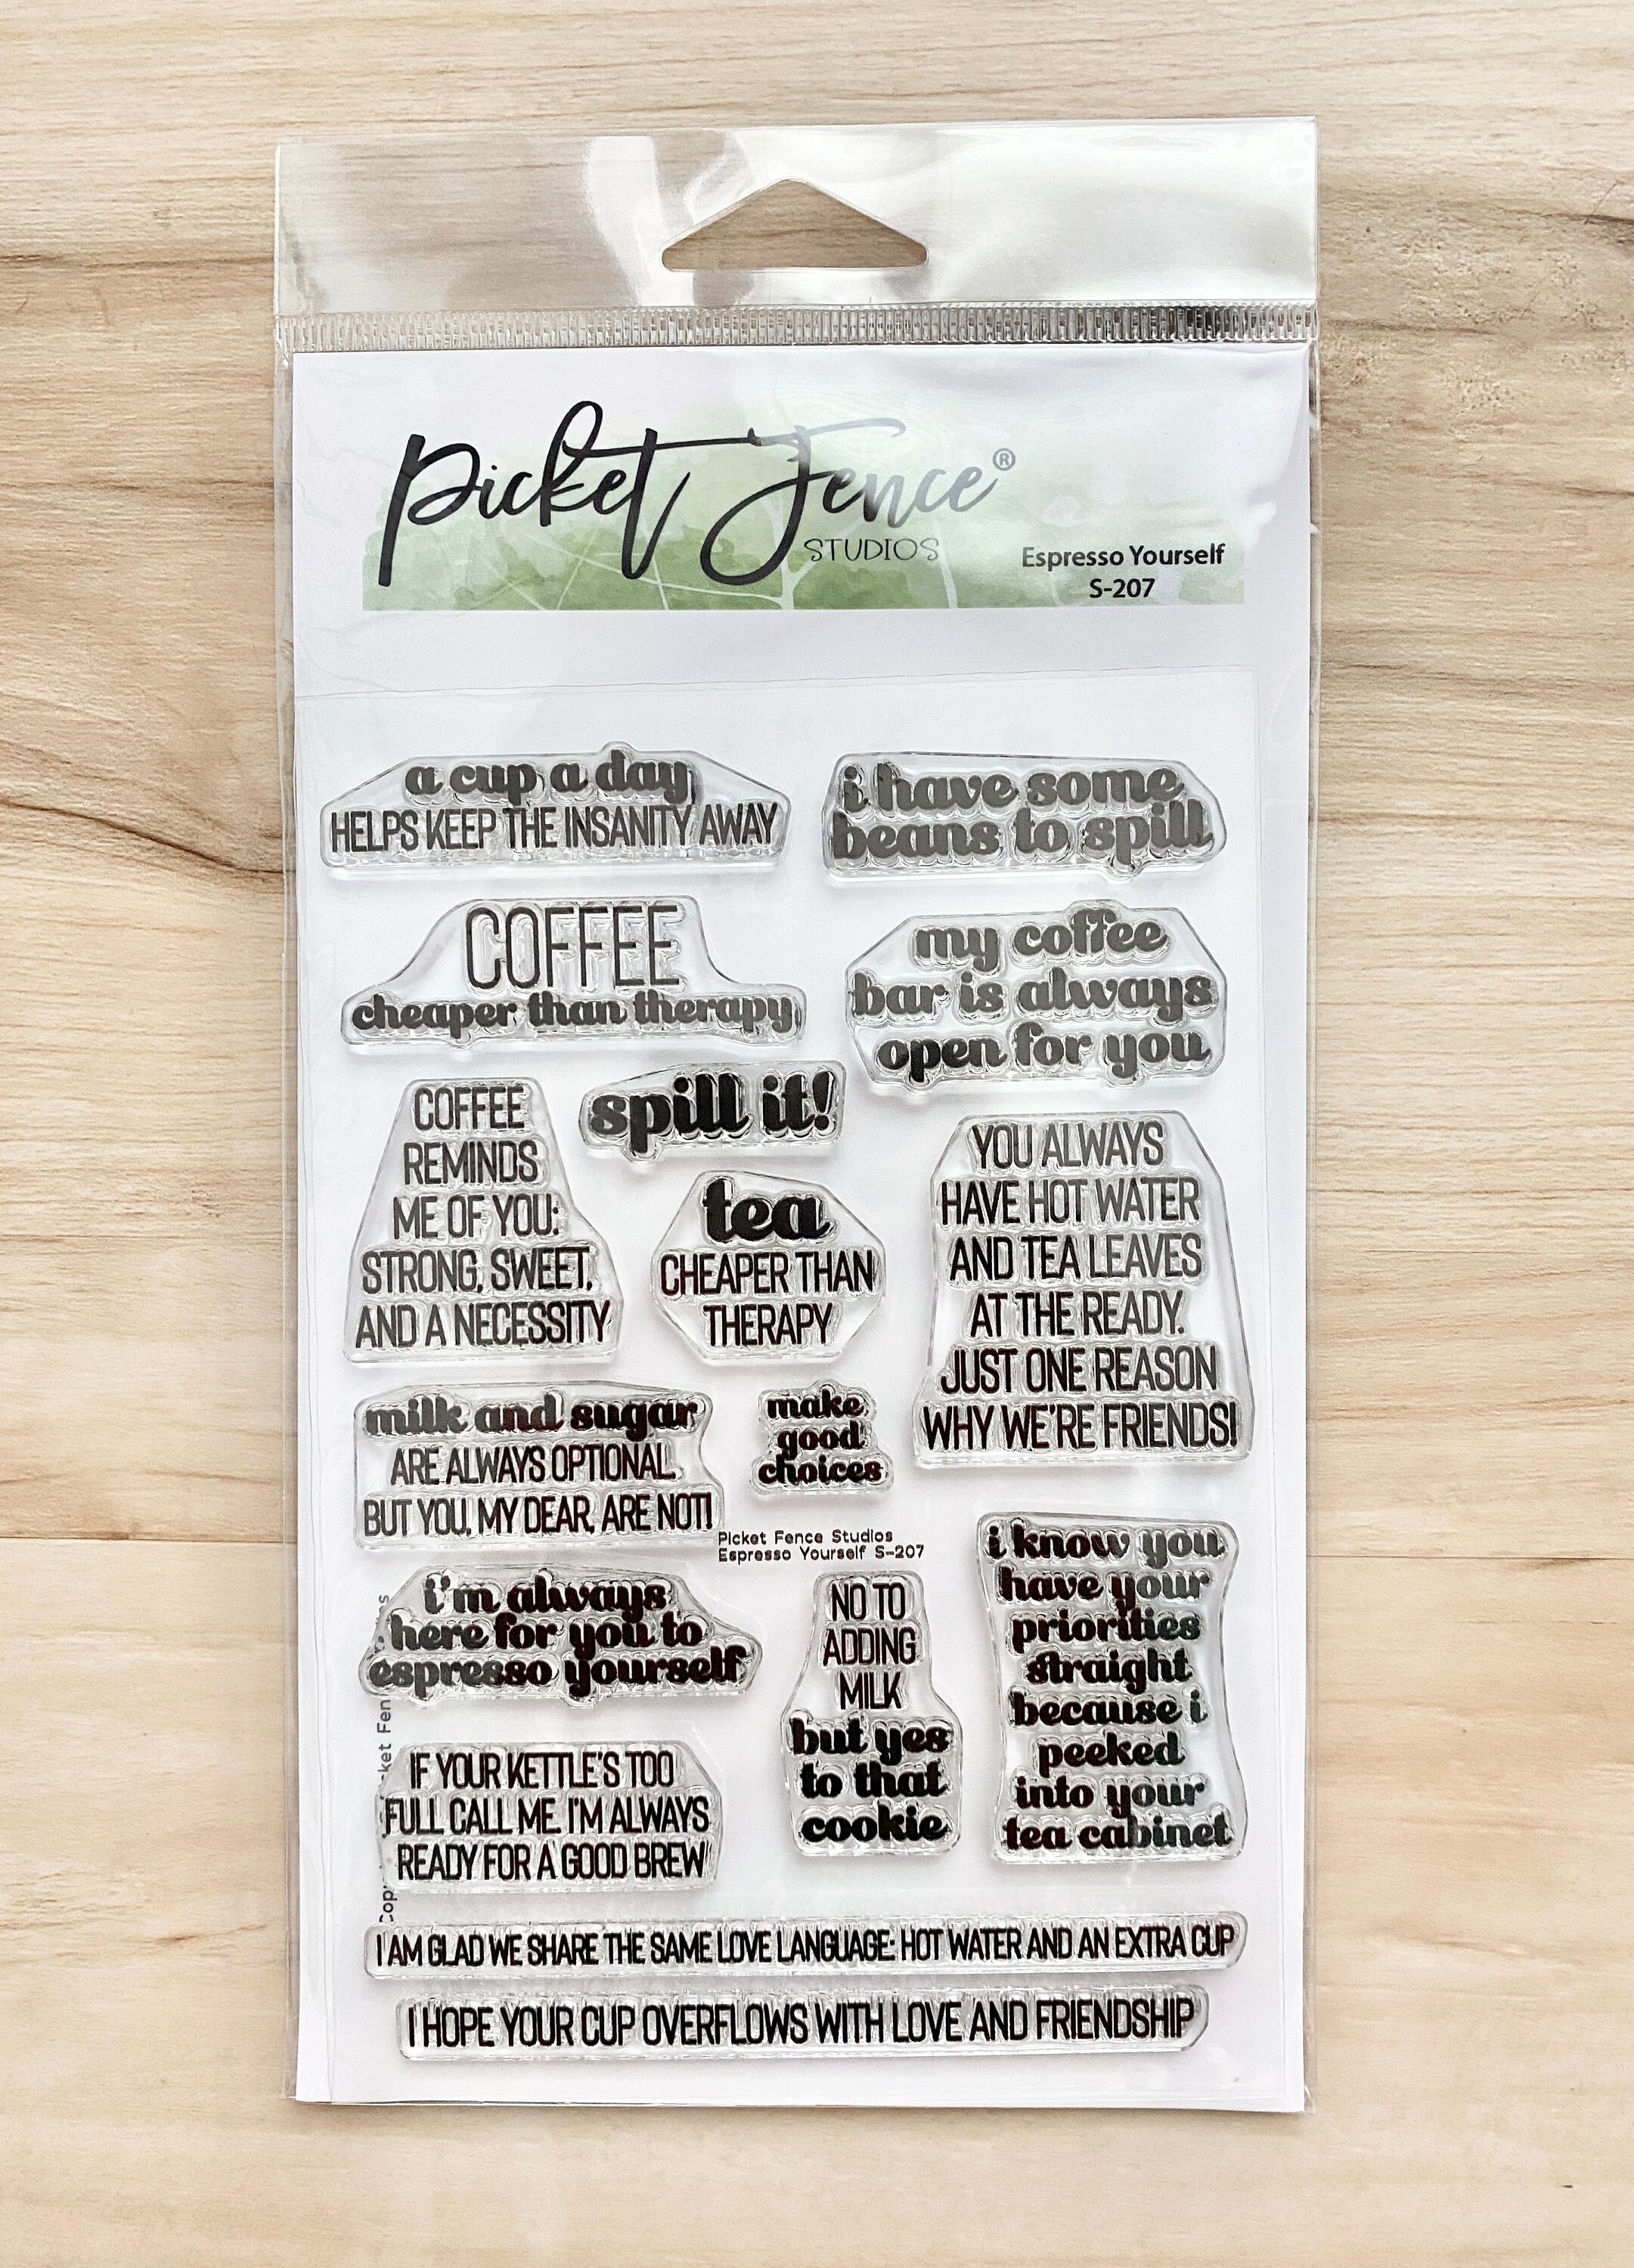 Picket Fence®
STUDIOS
Espresso Yourself
S-207
a cup a day
HELPS KEEP THE INSANITY AWAY
i have some
beans to spill
COFFEE
cheaper than therapy
my coffee
bar is always
open for you
spill it!
COFFEE
REMINDS
ME OF YOU:
STRONG, SWEET,
AND A NECESSITY
tea
CHEAPER THAN
THERAPY
YOU ALWAYS
HAVE HOT WATER
AND TEA LEAVES
AT THE READY.
JUST ONE REASON
WHY WE'RE FRIENDS!
milk and sugar
ARE ALWAYS OPTIONAL
BUT YOU, MY DEAR, ARE NOT!
make
good
choices
Picket Fence Studios
Espresso Yourself S-207
i'm always
here for you to
espresso yourself
NO TO
ADDING
MILK
but yes
to that
cookie
i know you
have your
priorities
straight
because i
peeked
into your
tea cabinet
IF YOUR KETTLE'S TOO
FULL CALL ME. I'M ALWAYS
READY FOR A GOOD BREW
I AM GLAD WE SHARE THE SAME LOVE LANGUAGE: HOT WATER AND AN EXTRA CUP
I HOPE YOUR CUP OVERFLOWS WITH LOVE AND FRIENDSHIP